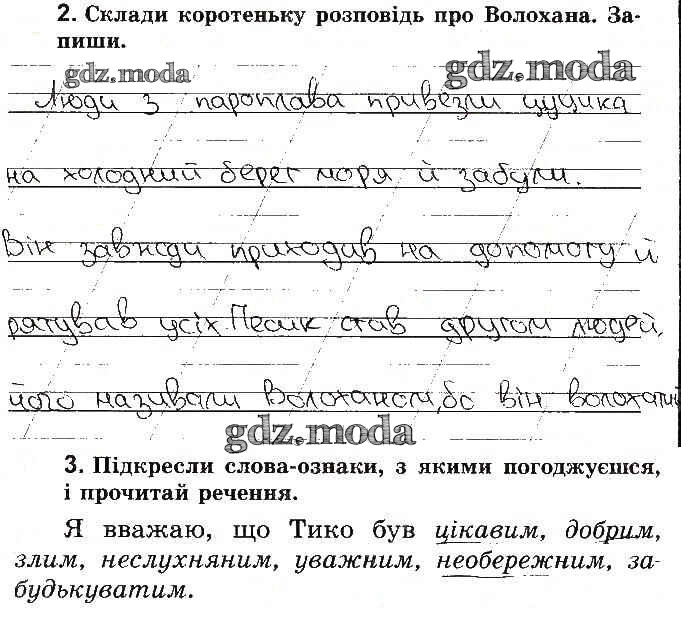 2. Склади коротеньку розповідь про Волохана. За-
пиши.
gdz.moda gdz.moda
Люди з пароплава привезли цуцика
на холодний берег моря й забули.
Він завжди приходив на допомогу й
рятував усіх. Песик став другом людей,
його називали Волоханом, бо він волохатий
gdz.moda
3. Підкресли слова-ознаки, з якими погоджуєшся,
і прочитай речення.
Я вважаю, що Тико був цікавим, добрим,
злим, неслухняним, уважним, необережним, за-
будькуватим.